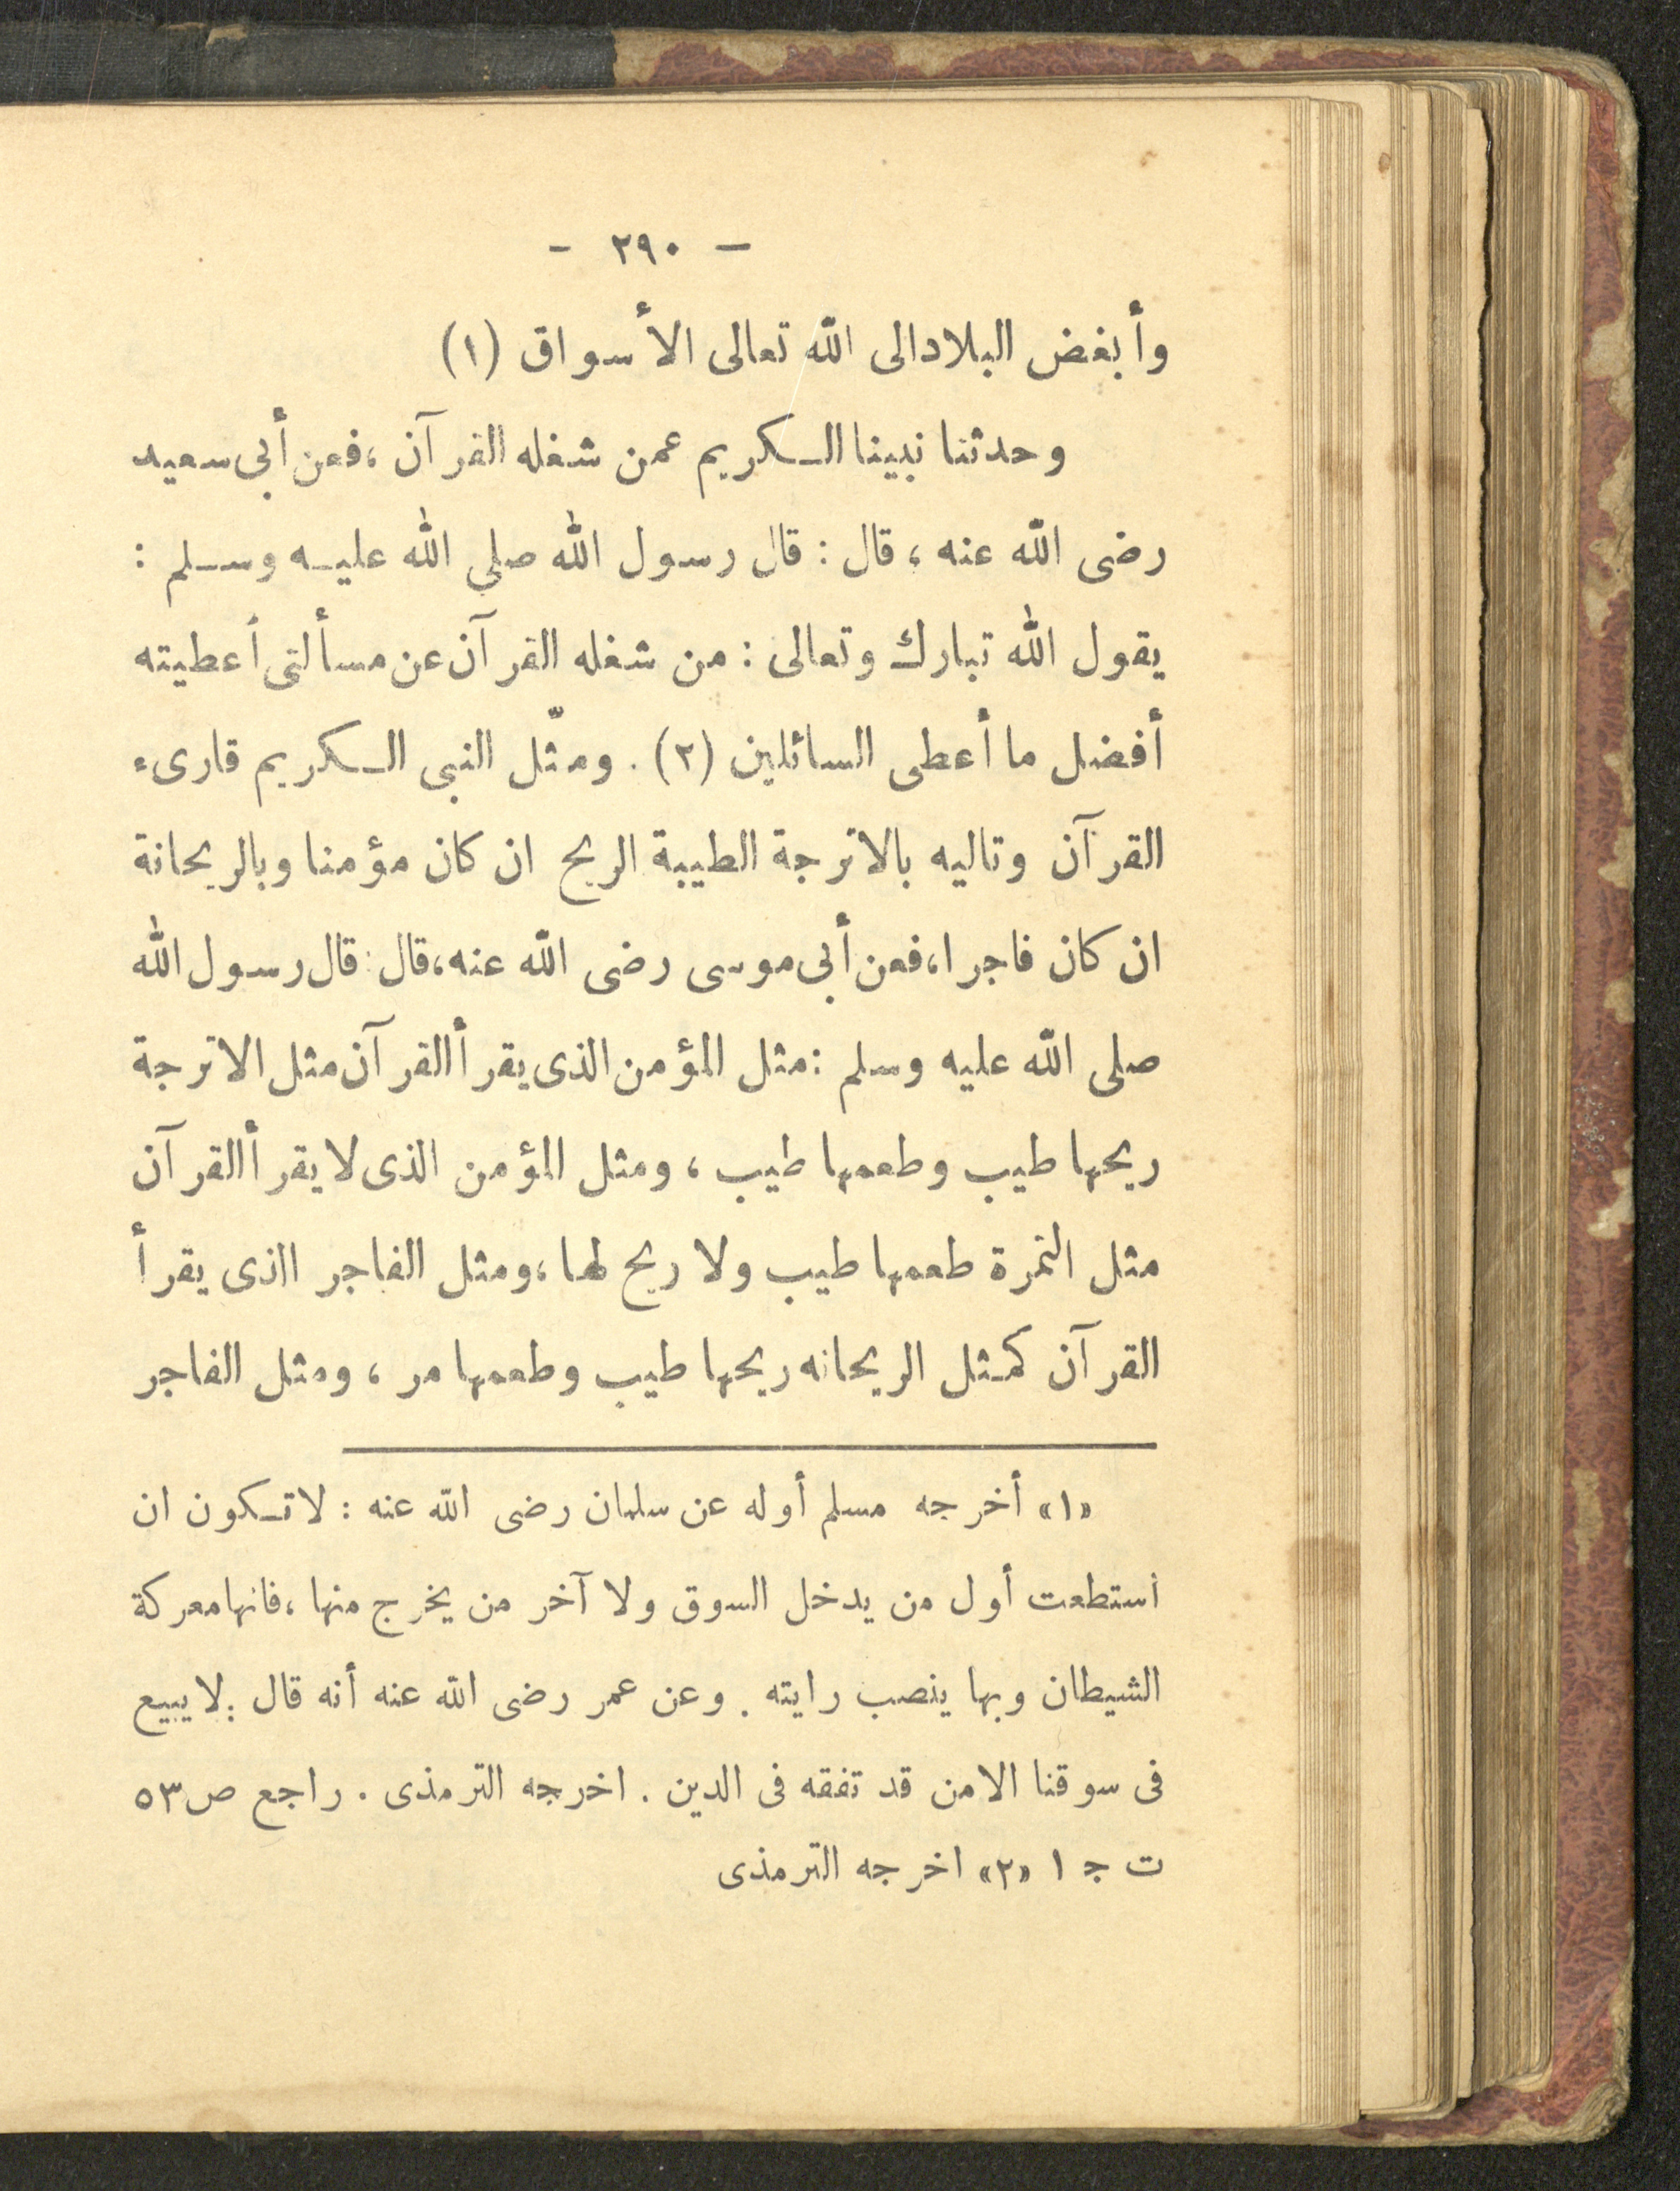 - ٢٩٠ -
وأبغض البلاد الى الله تعالى الأسواق (١)
وحدثنا نبينا الكريم عمن شغله القرآن ، فعن أبى سعيد
رضى الله عنه ، قال : قال رسول الله صلى الله عليه وسلم :
يقول الله تبارك وتعالى : من شغله القرآن عن مسألتى أعطيته
أفضل ما أعطى السائلين (٢) . ومثّل النبى الكريم قارىء
القرآن وتاليه بالاترجة الطيبة الريح ان كان مؤمنا وبالريحانة
ان كان فاجرا ، فعن أبى موسى رضى الله عنه ، قال : قال رسول الله
صلى الله عليه وسلم : مثل المؤمن الذى يقرأ القرآن مثل الاترجة
ريحها طيب وطعمها طيب ، ومثل المؤمن الذى لا يقرأ القرآن
مثل التمرة طعمها طيب ولا ريح لها ، ومثل الفاجر الذى يقرأ
القرآن كمثل الريحانه ريحها طيب وطعمها مر ، ومثل الفاجر
«١» أخرجه مسلم أوله عن سلمان رضى الله عنه : لا تكون ان
استطعت أول من يدخل السوق ولا آخر من يخرج منها ، فانها معركة
الشيطان وبها ينصب رايته . وعن عمر رضى الله عنه أنه قال : لا يبيع
فى سوقنا الا من قد تفقه فى الدين . اخرجه الترمذى . راجع ص ٥٣
ت ج ١ «٢» اخرجه الترمذى